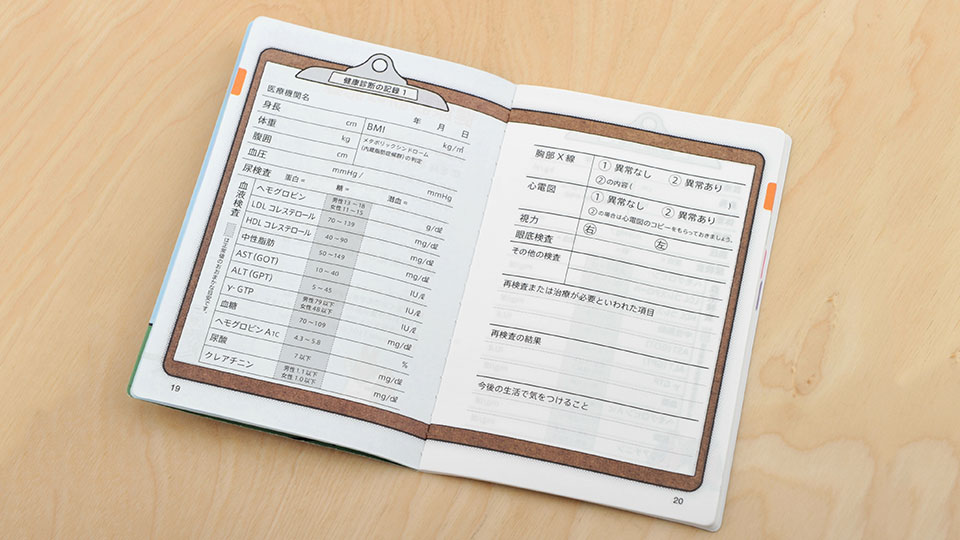 健康診断の記録 1
医療機関名
年 月 日
身長 cm BMI kg/㎡
体重 kg メタボリックシンドローム
(内蔵脂肪症候群)の判定
腹囲 cm
血圧 mmHg / mmHg
尿検査 蛋白= 糖= 潜血=
血液検査
は正常値のおおまかな目安です。
ヘモグロビン 男性13~18 g/㎗
女性11~15
LDL コレステロール 70~139 mg/㎗
HDL コレステロール 40~90 mg/㎗
中性脂肪 50~149 mg/㎗
AST(GOT) 10~40 IU/ℓ
ALT(GPT) 5~45 IU/ℓ
γ-GTP 男性79以下 IU/ℓ
女性48以下
血糖 70~109 mg/㎗
ヘモグロビン A1C 4.3~5.8 %
尿酸 7以下 mg/㎗
クレアチニン 男性1.1以下 mg/㎗
女性1.0以下
19
胸部X線 ①異常なし ②異常あり
②の内容( )
心電図 ①異常なし ②異常あり
②の場合は心電図のコピーをもらっておきましょう。
視力 右 左
眼底検査
その他の検査
再検査または治療が必要といわれた項目
再検査の結果
今後の生活で気をつけること
20